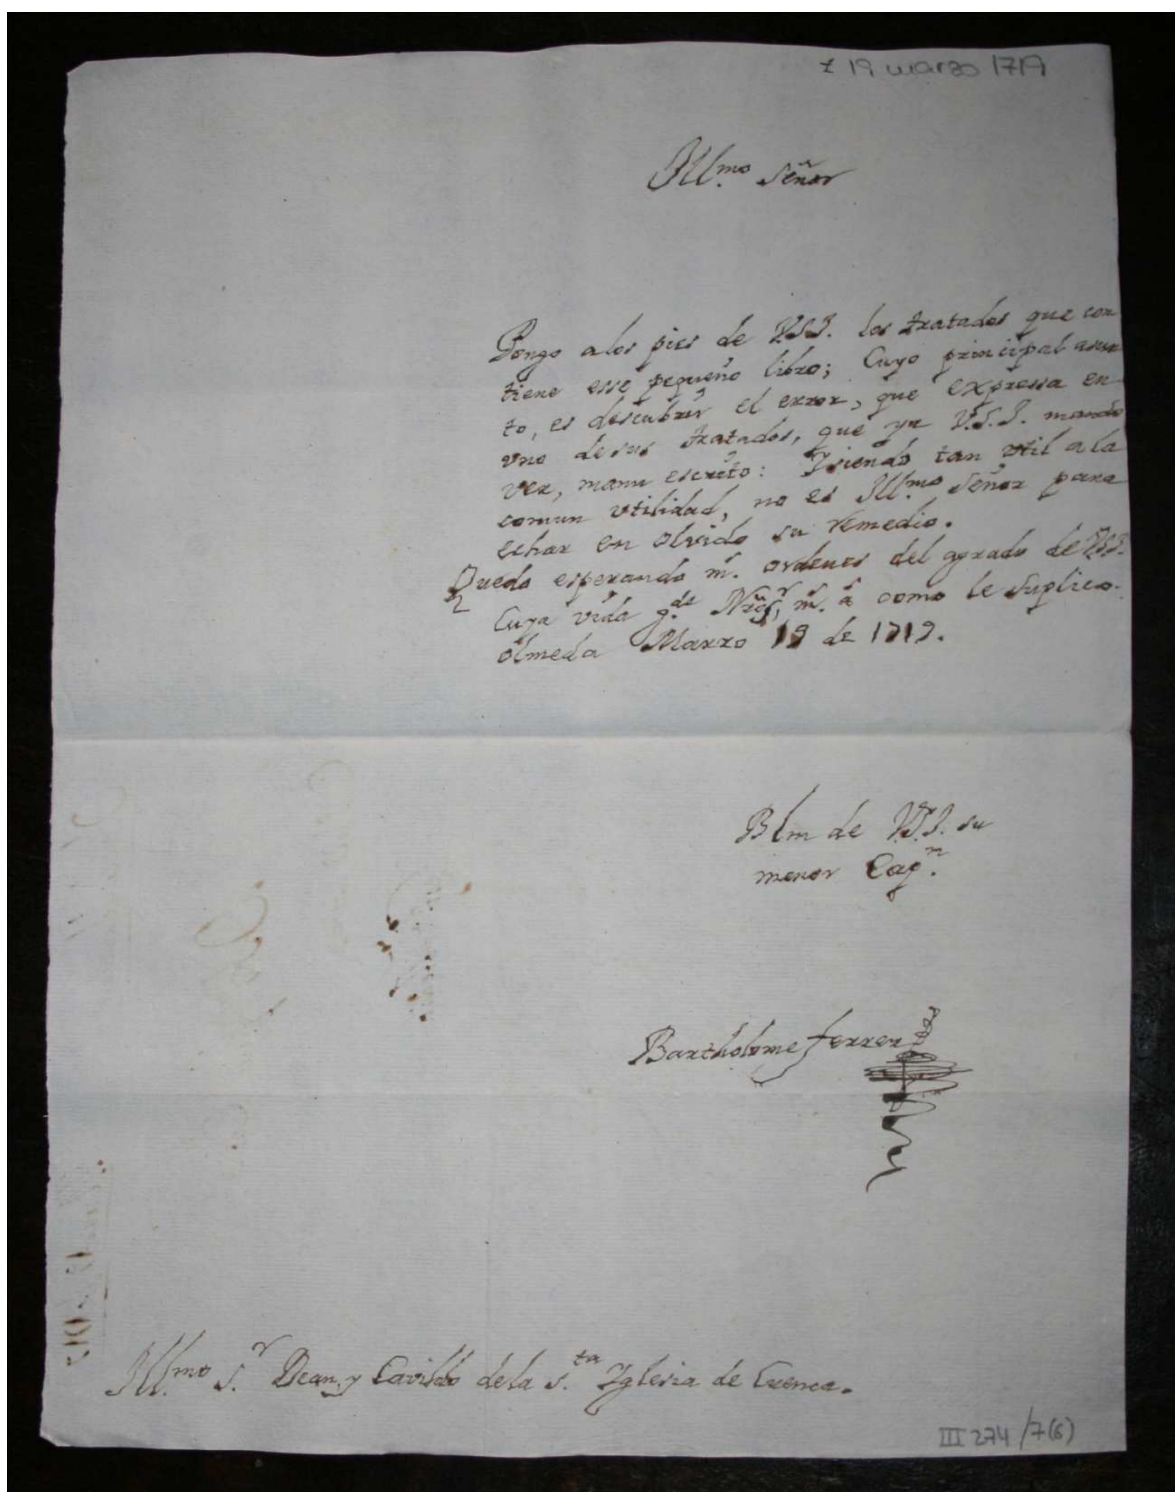 z 19 marzo 1719
Yll.mo Señor
Pongo a los pies de V.S.I. los tratados que con
tiene esse pequeño libro; Cuyo principal asun
to, es descubrir el error, que expressa en
vno de sus tratados, que ya V.S.I. mando
ver, manu escrito: Y siendo tan vtil a la
comun vtilidad, no es Yll.mo Señor para
echar en olvido su remedio.
Quedo esperando m.s ordenes del agrado de V.S.I.
Cuya vida g.de m.s a.s como le suplico.
Olmeda Marzo 19 de 1719.
Blm de V.S.I. su
menor Cap.n
Bartholome ferrer
Yll.mo S.r Dean, y Cavildo de la S.ta Yglesia de Cuenca.
III 274 /7(6)